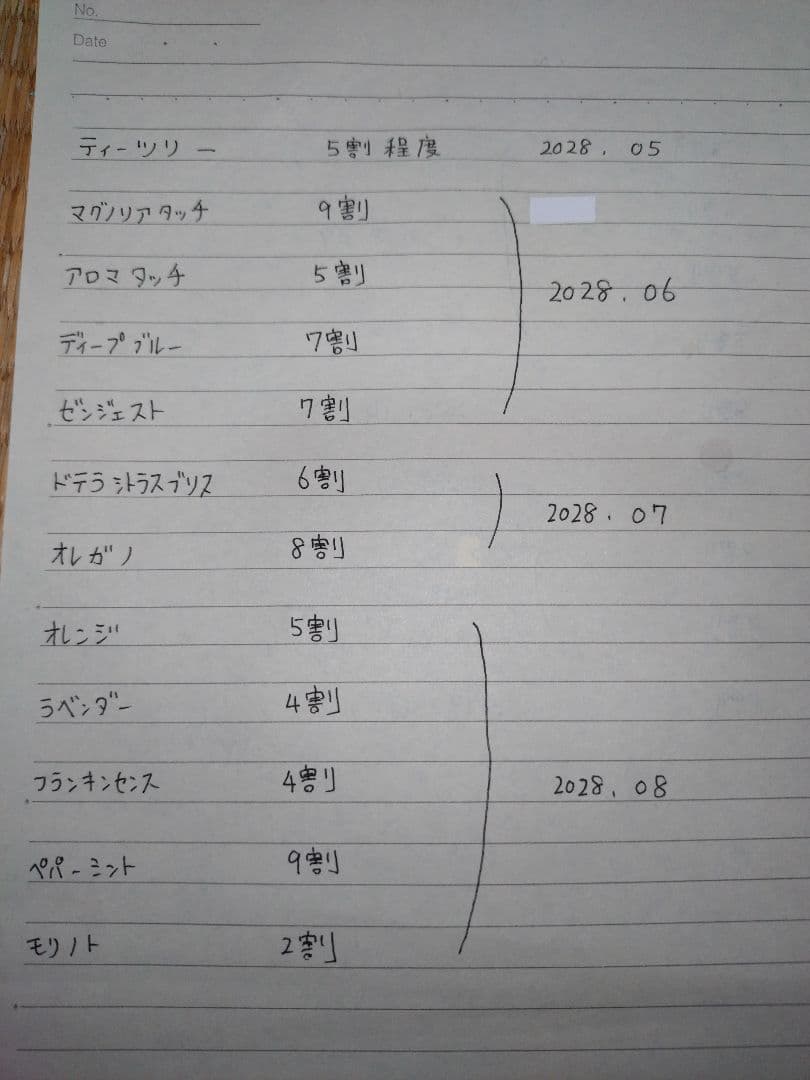 No.
Date
ティーツリー 5割程度 2028.05
マグノリアタッチ 9割
アロマタッチ 5割
2028.06
ディープブルー 7割
ゼンジェスト 7割
ドテラシトラスブリス 6割
2028.07
オレガノ 8割
オレンジ 5割
ラベンダー 4割
フランキンセンス 4割 2028.08
ペパーミント 9割
モリノト 2割